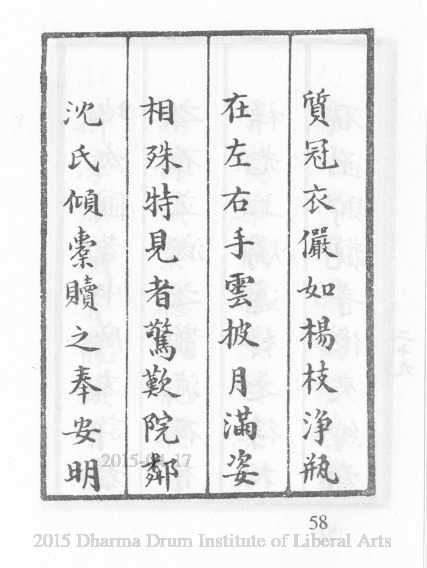 質冠衣儼如楊枝淨瓶
在左右手雲披月滿姿
相殊特見者驚歎院鄰
沈氏傾橐贖之奉安明
2015-04-17
58
2015 Dharma Drum Institute of Liberal Arts